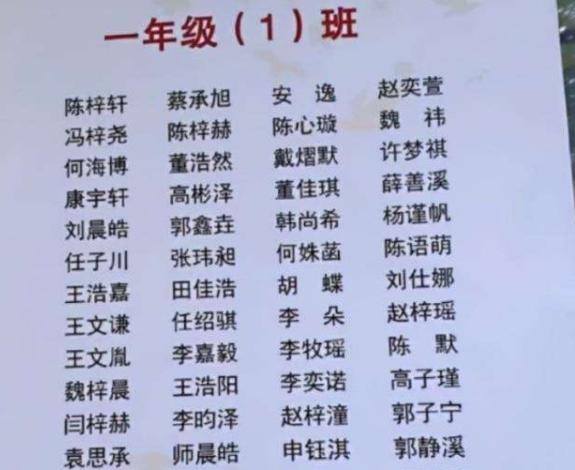 一年级（1）班
陈梓轩 蔡承旭 安 逸 赵奕萱
冯梓尧 陈梓赫 陈心璇 魏 祎
何海博 董浩然 戴熠默 许梦祺
康宇轩 高彬泽 董佳琪 薛善溪
刘晨皓 郭鑫垚 韩尚希 杨谨帆
任子川 张玮昶 何姝菡 陈语萌
王浩嘉 田佳浩 胡 蝶 刘仕娜
王文谦 任绍骐 李 朵 赵梓瑶
王文胤 李嘉毅 李牧瑶 陈 默
魏梓晨 王浩阳 李奕诺 高子瑾
闫梓赫 李昀泽 赵梓潼 郭子宁
袁思承 师晨皓 申钰淇 郭静溪